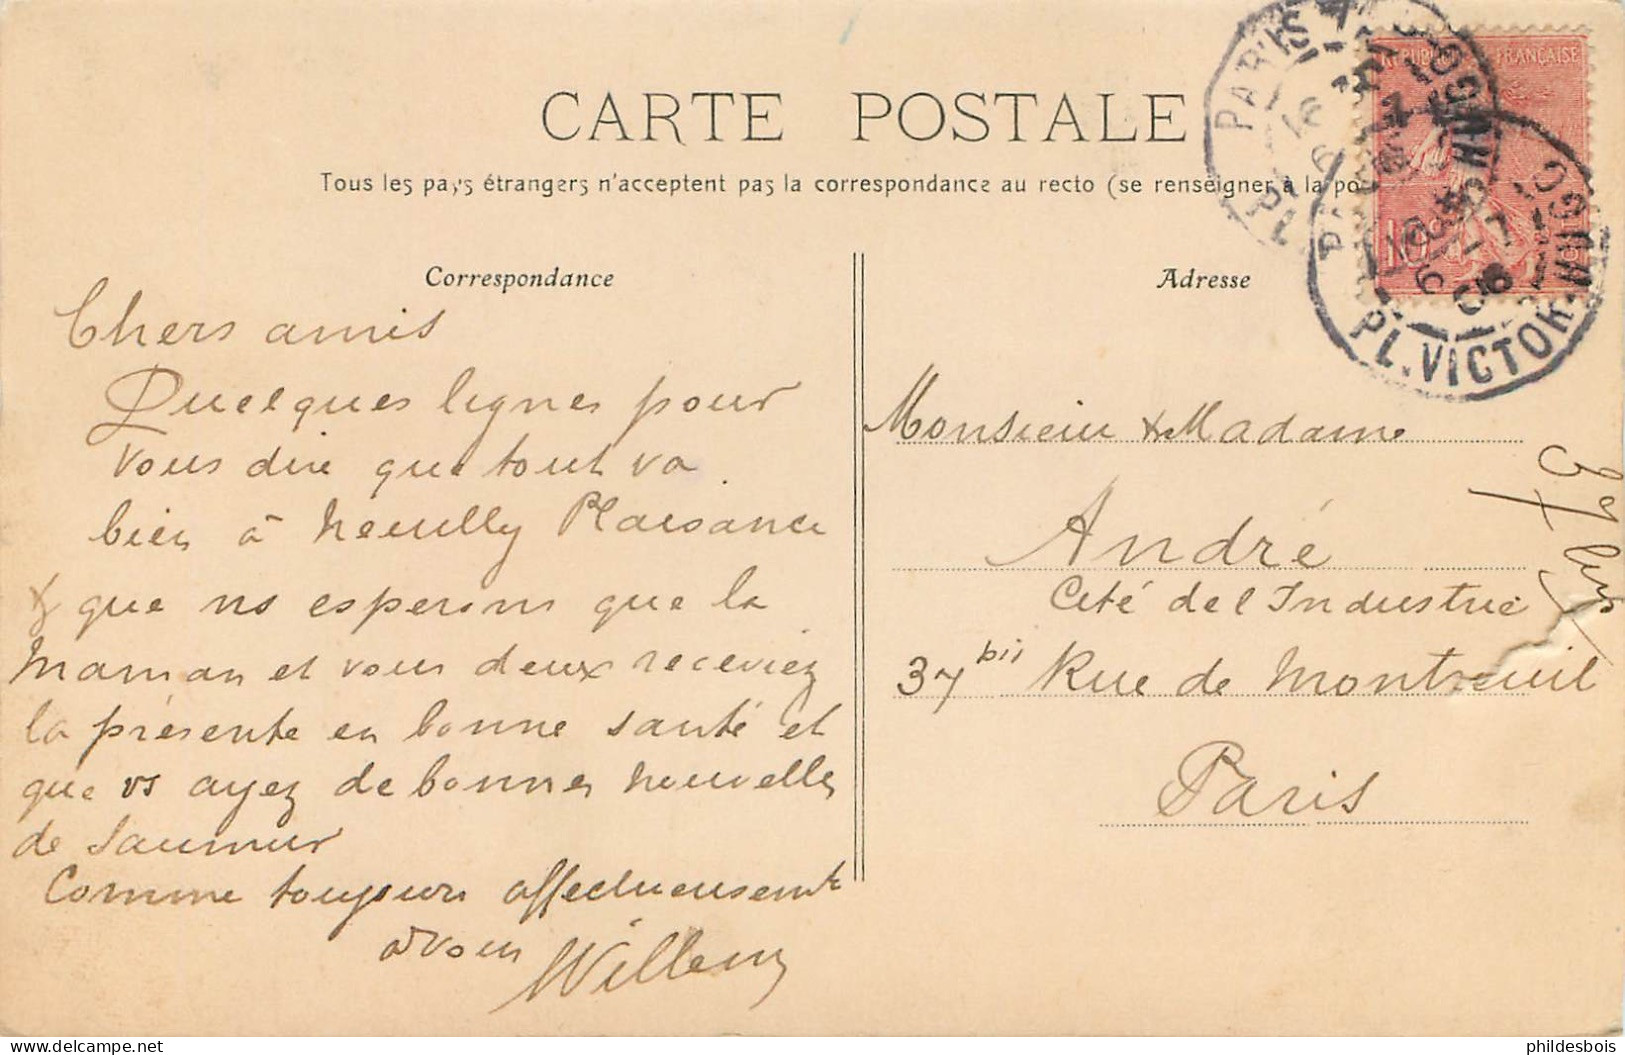 CARTE POSTALE
Tous les pays étrangers n'acceptent pas la correspondance au recto (se renseigner à la po
Correspondance
Chers amis
Quelques lignes pour
vous dire que tout va
bien à Neuilly Plaisance
& que ns esperons que la
Maman et vous deux receviez
la présente en bonne santé et
que vs ayez de bonnes nouvelles
de Saumur
Comme toujours affectueusement
à vous Willem
Adresse
Monsieur & Madame
André
Cité de l Industrie
37 bis Rue de Montreuil
Paris
37 bis
REPUBLIQUE FRANÇAISE
10
PARIS
PL. VICTOR
16
6
06
phildesbois
www.delcampe.net